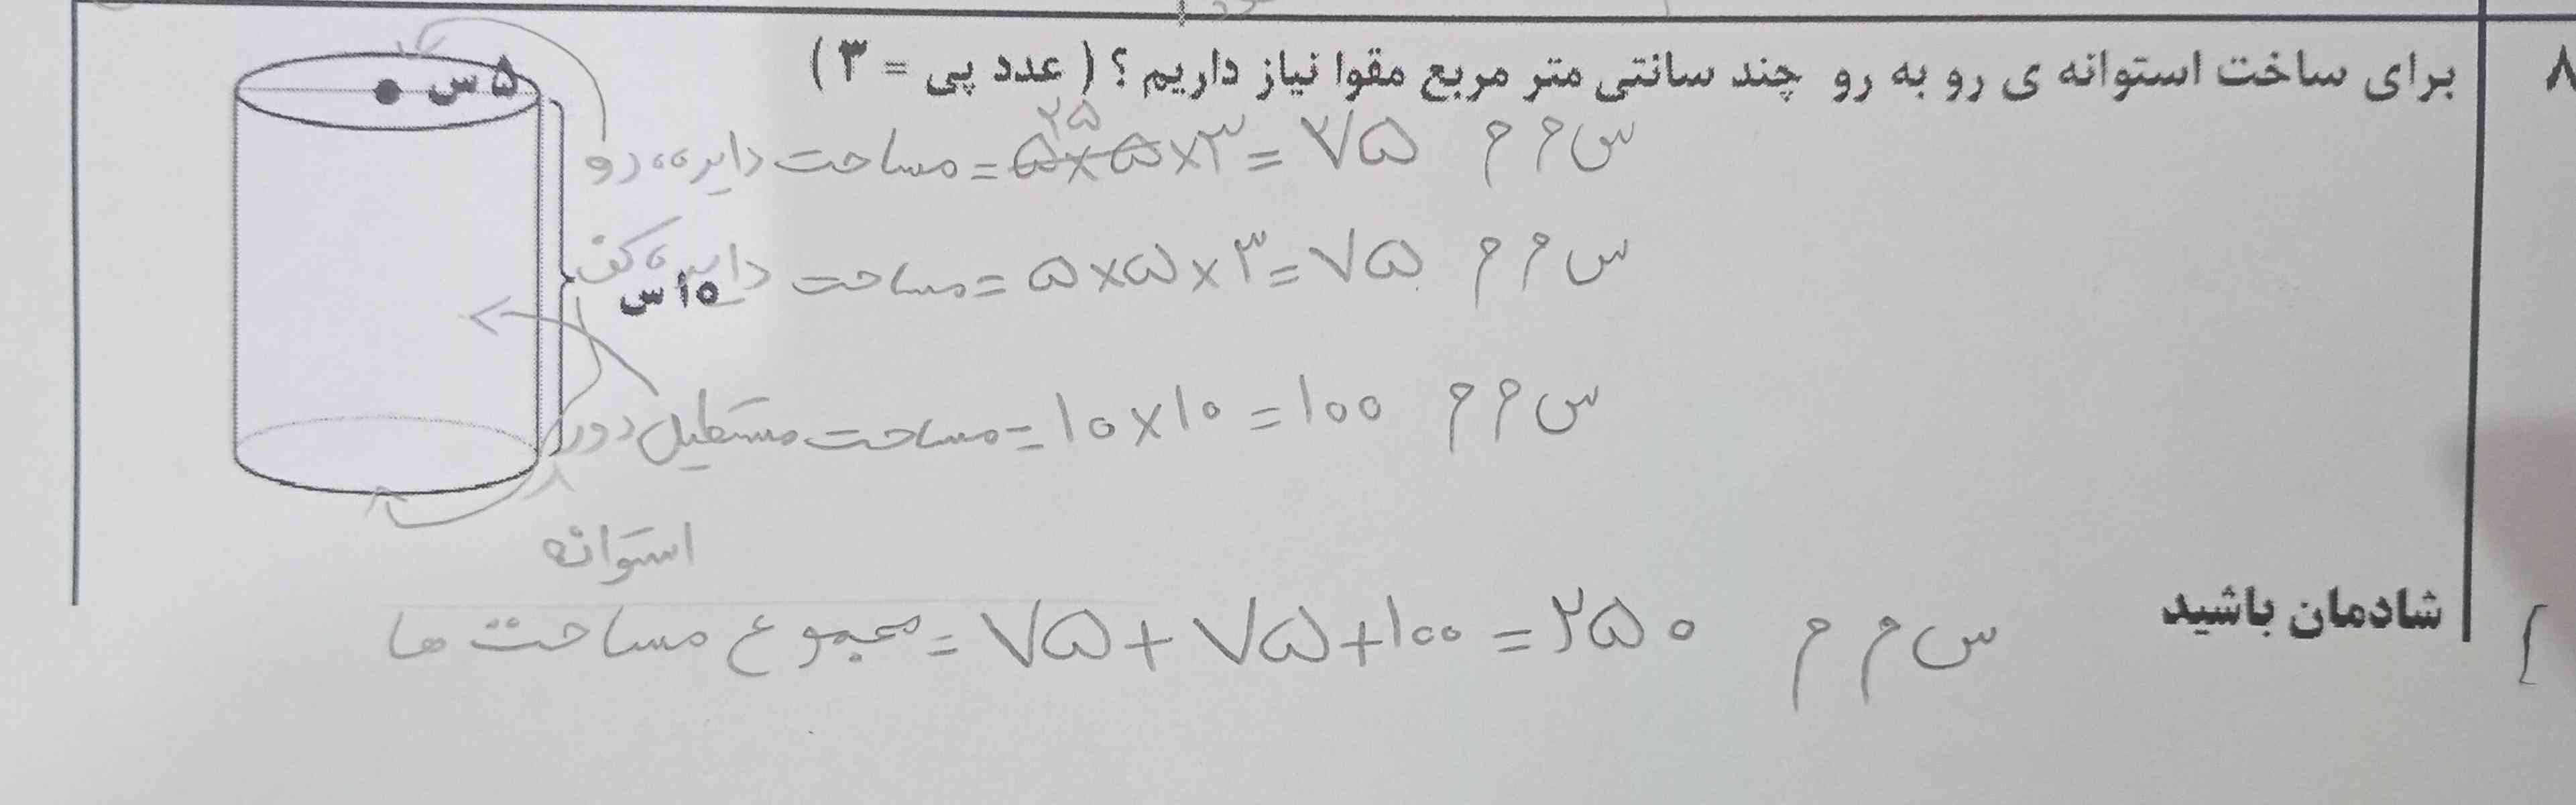 ۸
برای ساخت استوانه ی رو به رو چند سانتی متر مربع مقوا نیاز داریم؟ ( عدد پی = ۳ )
۵ س
۲۵
مساحت دایره رو = ۵×۵×۳ = ۷۵ س م م
مساحت دایره کف = ۵×۵×۳ = ۷۵ س م م
۱۰ س
مساحت مستطیل دور = ۱۰×۱۰ = ۱۰۰ س م م
استوانه
مجموع مساحت ها = ۷۵ + ۷۵ + ۱۰۰ = ۲۵۰ س م م
شادمان باشید